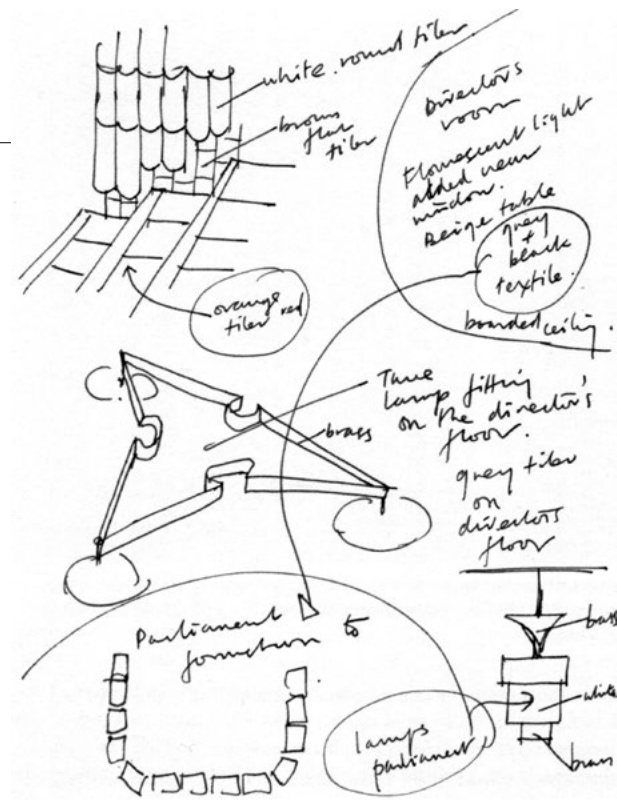 white round tiles
brown
flat
tiles
orange
tiles red
Director's
room
Flourescent light
added near
window.
Beige table
grey
+
black
textile.
boarded ceiling.
lamp fitting
on the director's
floor.
brass
grey tiles
on
directors
floor
Parliament
formation to
lamps
parliament
brass
white
brass